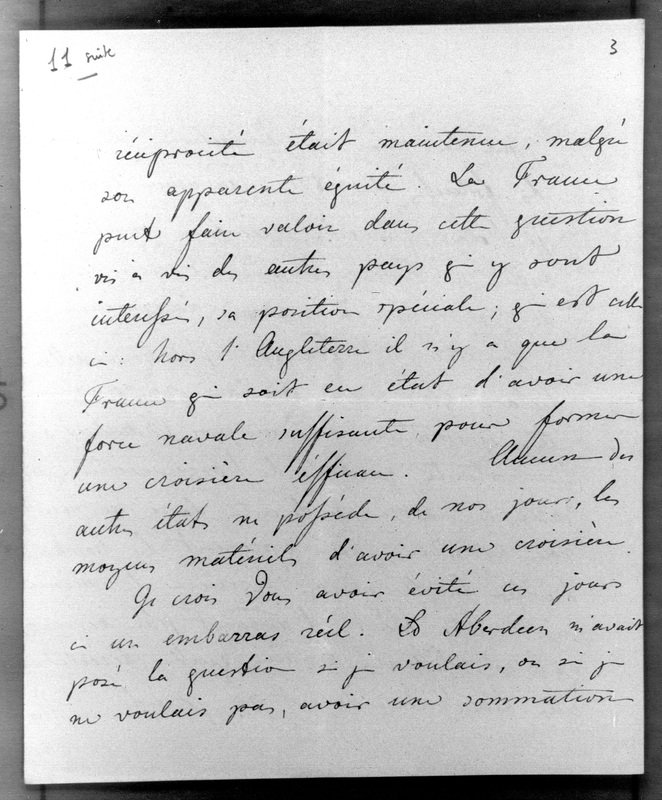 11 suite
3
réciprocité était maintenue, malgré
son apparente équité. La France
peut faire valoir dans cette question
vis à vis des autres pays qui y sont
interessés, sa position spéciale; qui est celle
ci: hors l'Angleterre il n'y a que la
France qui soit en état d'avoir une
force navale suffisante pour former
une croisière éfficace. Aucun des
autres états ne possède, de nos jours, les
moyens matériels d'avoir une croisière.
Je crois Vous avoir évité ces jours
ci un embarras réel. Ld Aberdeen m'avait
posé la question si je voulais, ou si je
ne voulais pas, avoir une sommation